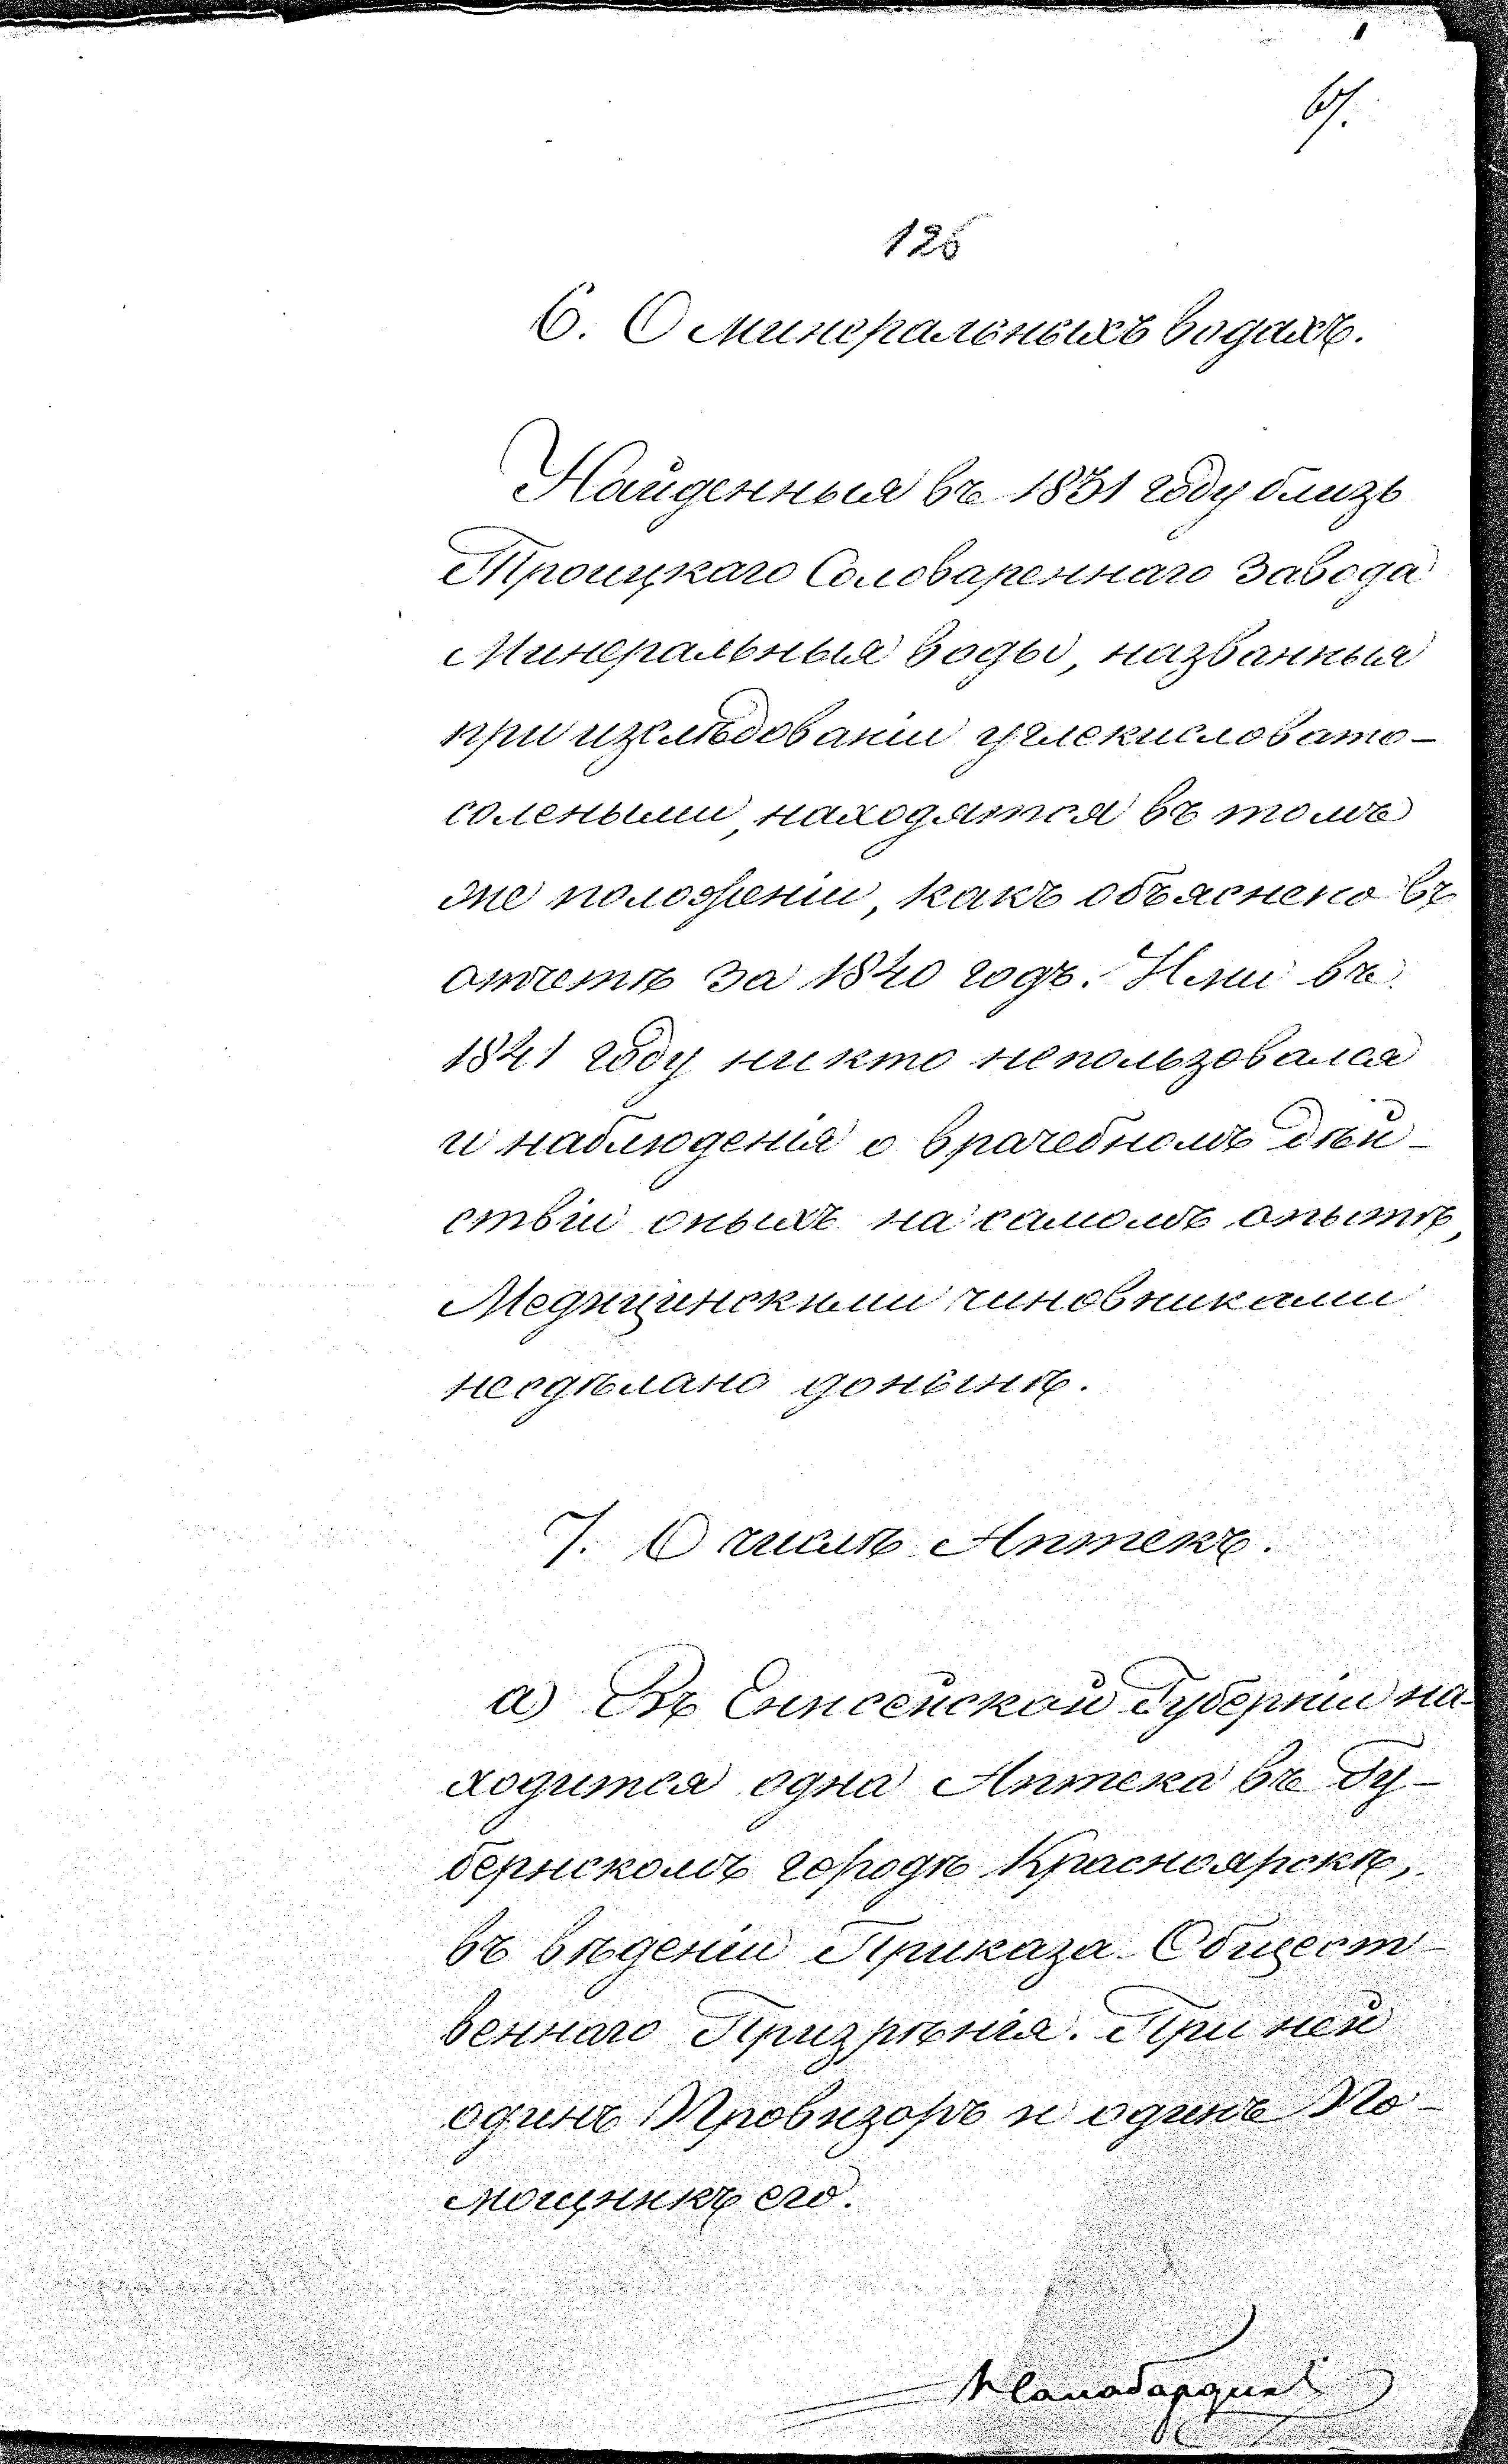 126
6. О минеральныхъ водахъ.
Найденныя въ 1831 году близь
Троицкаго Соловареннаго Завода
Минеральныя воды, названныя
при изслѣдованіи углекисловато-
солеными, находятся въ томъ
же положеніи, какъ объяснено въ
отчетѣ за 1840 годъ. Ими въ
1841 году никто непользовался
и наблюденія о врачебномъ дѣй-
ствіи оныхъ на самомъ опытѣ,
Медицинскими чиновниками
несдѣлано донынѣ.
7. О числѣ Аптекъ.
а) Въ Енисейской Губерніи на-
ходится одна Аптека въ Гу-
бернскомъ городѣ Красноярскѣ,
въ вѣденіи Приказа Общест-
веннаго Призрѣнія. При ней
одинъ Провизоръ и одинъ По-
мощникъ его.